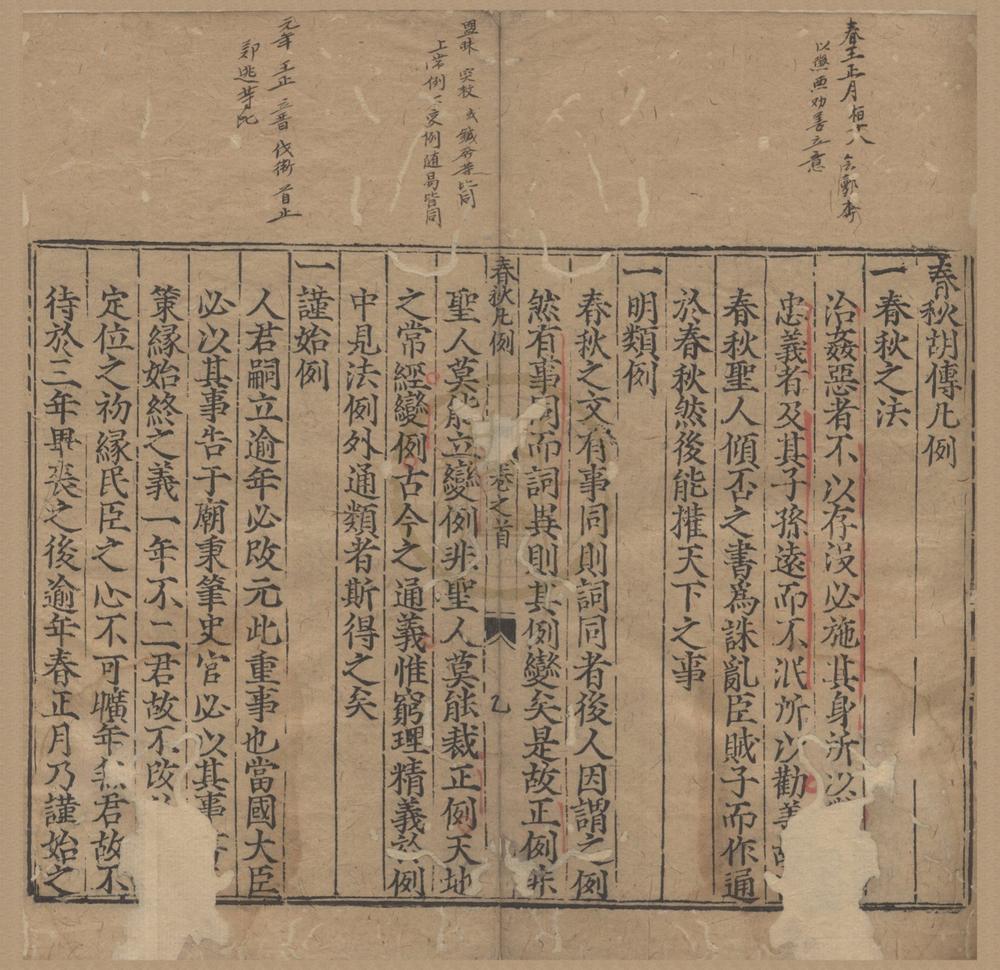 春秋胡傳凡例
一春秋之法
治姦惡者不以存没必施其身所以
忠義者及其子孫遠而不泯所以勸善
春秋聖人傾否之書爲誅亂臣賊子而作通
於春秋然後能權天下之事
一明類例
春秋之文有事同則詞同者後人因謂之例
然有事同而詞異則其例變矣是故正例非
春秋凡例
卷之首
乙
聖人莫能立變例非聖人莫能裁正例天地
之常經變例古今之通義惟窮理精義於例
中見法例外通類者斯得之矣
一謹始例
人君嗣立逾年必改元此重事也當國大臣
必以其事告于廟秉筆史官必以其事書
策緣始終之義一年不二君故不改
定位之初緣民臣之心不可曠年無君故不
待於三年畢喪之後逾年春正月乃謹始之
春王正月
以爲勸善立意
上常例
變例隨局皆同
元年 王正
伐衛 首止